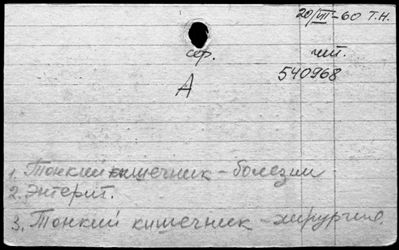 20/VII-60 Т.Н.
сер. чит.
540968
А
1. Тонкий кишечник - болезни
2. Энтерит.
3. Тонкий кишечник - хирургия.